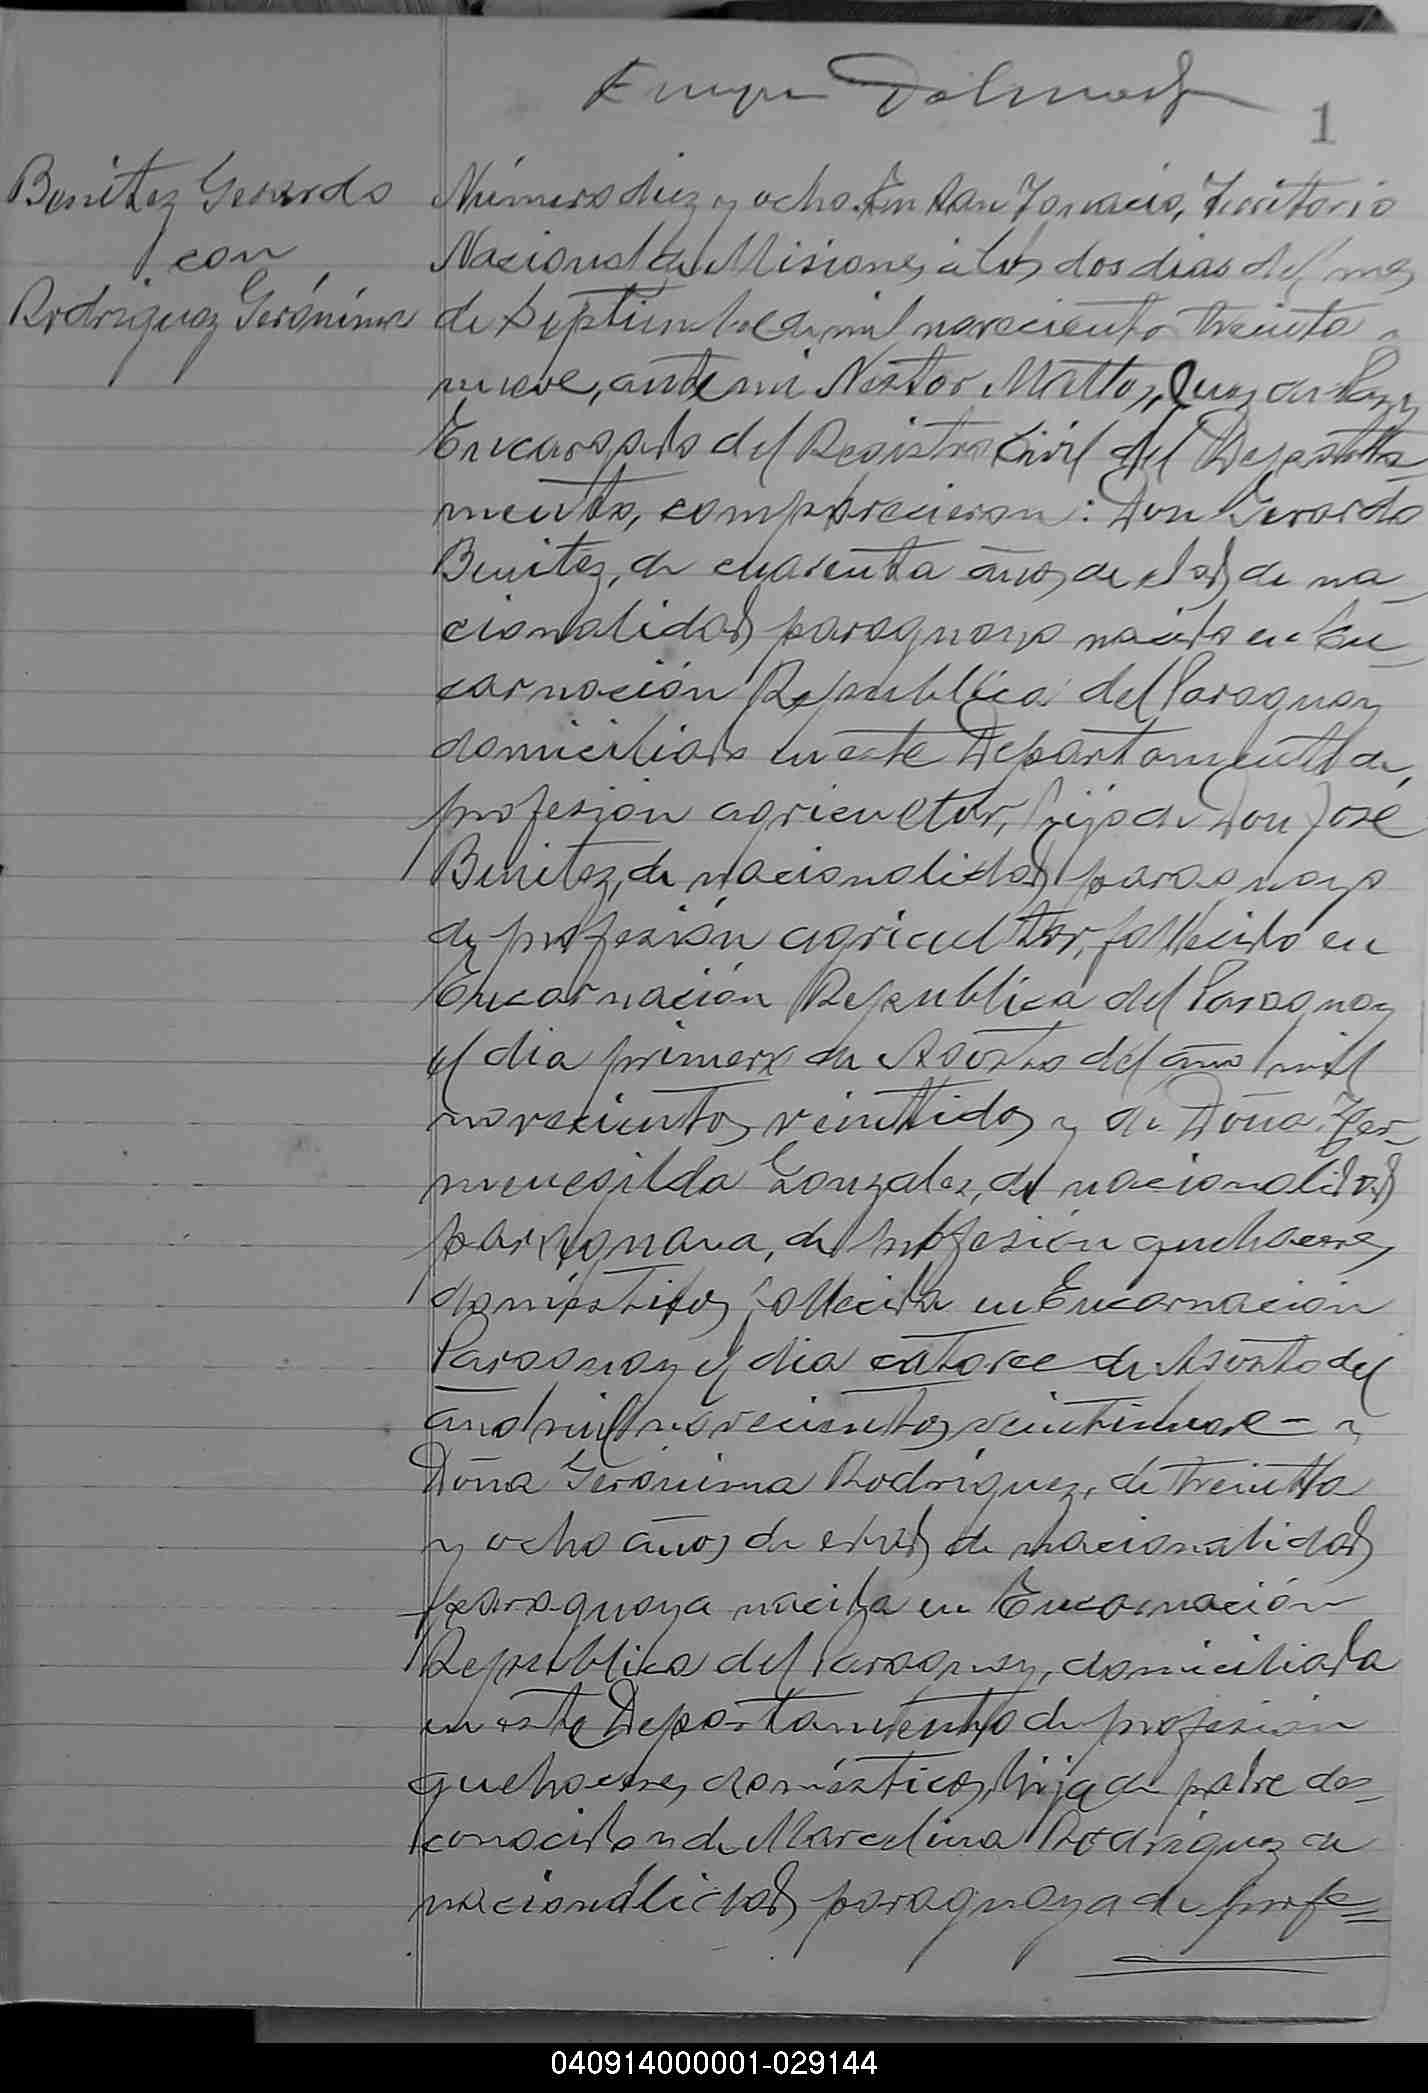 1
Benitez Gerardo
con
Rodriguez Gerónima
Número diez y ocho. En San Ignacio, Territorio
Nacional de Misiones, a los dos dias del mes
de Septiembre de mil novecientos treinta y
nueve, ante mi Nestor Mattos, Juez de Paz y
Encargado del Registro Civil del Departa-
mento, comparecieron: Don Gerardo
Benitez, de cuarenta años de edad, de na-
cionalidad paraguaya nacido en En-
carnación Republica del Paraguay
domiciliado en este Departamento de
profesión agricultor, hijo de Don José
Benitez, de nacionalidad paraguaya
de profesión agricultor, fallecido en
Encarnación Republica del Paraguay
el dia primero de Agosto del año mil
novecientos veintidos y de Doña Her-
menegilda Gonzalez, de nacionalidad
paraguaya, de profesión quehaceres
domésticos, fallecida en Encarnación
Paraguay el dia catorce de Agosto del
año mil novecientos veintinueve - y
Doña Gerónima Rodriguez, de treinta
y ocho años de edad, de nacionalidad
paraguaya nacida en Encarnación
Republica del Paraguay, domiciliada
en este Departamento de profesión
quehaceres domésticos, hija de padre des-
conocido y de Marcelina Rodriguez de
nacionalidad paraguaya de profe=
040914000001-029144